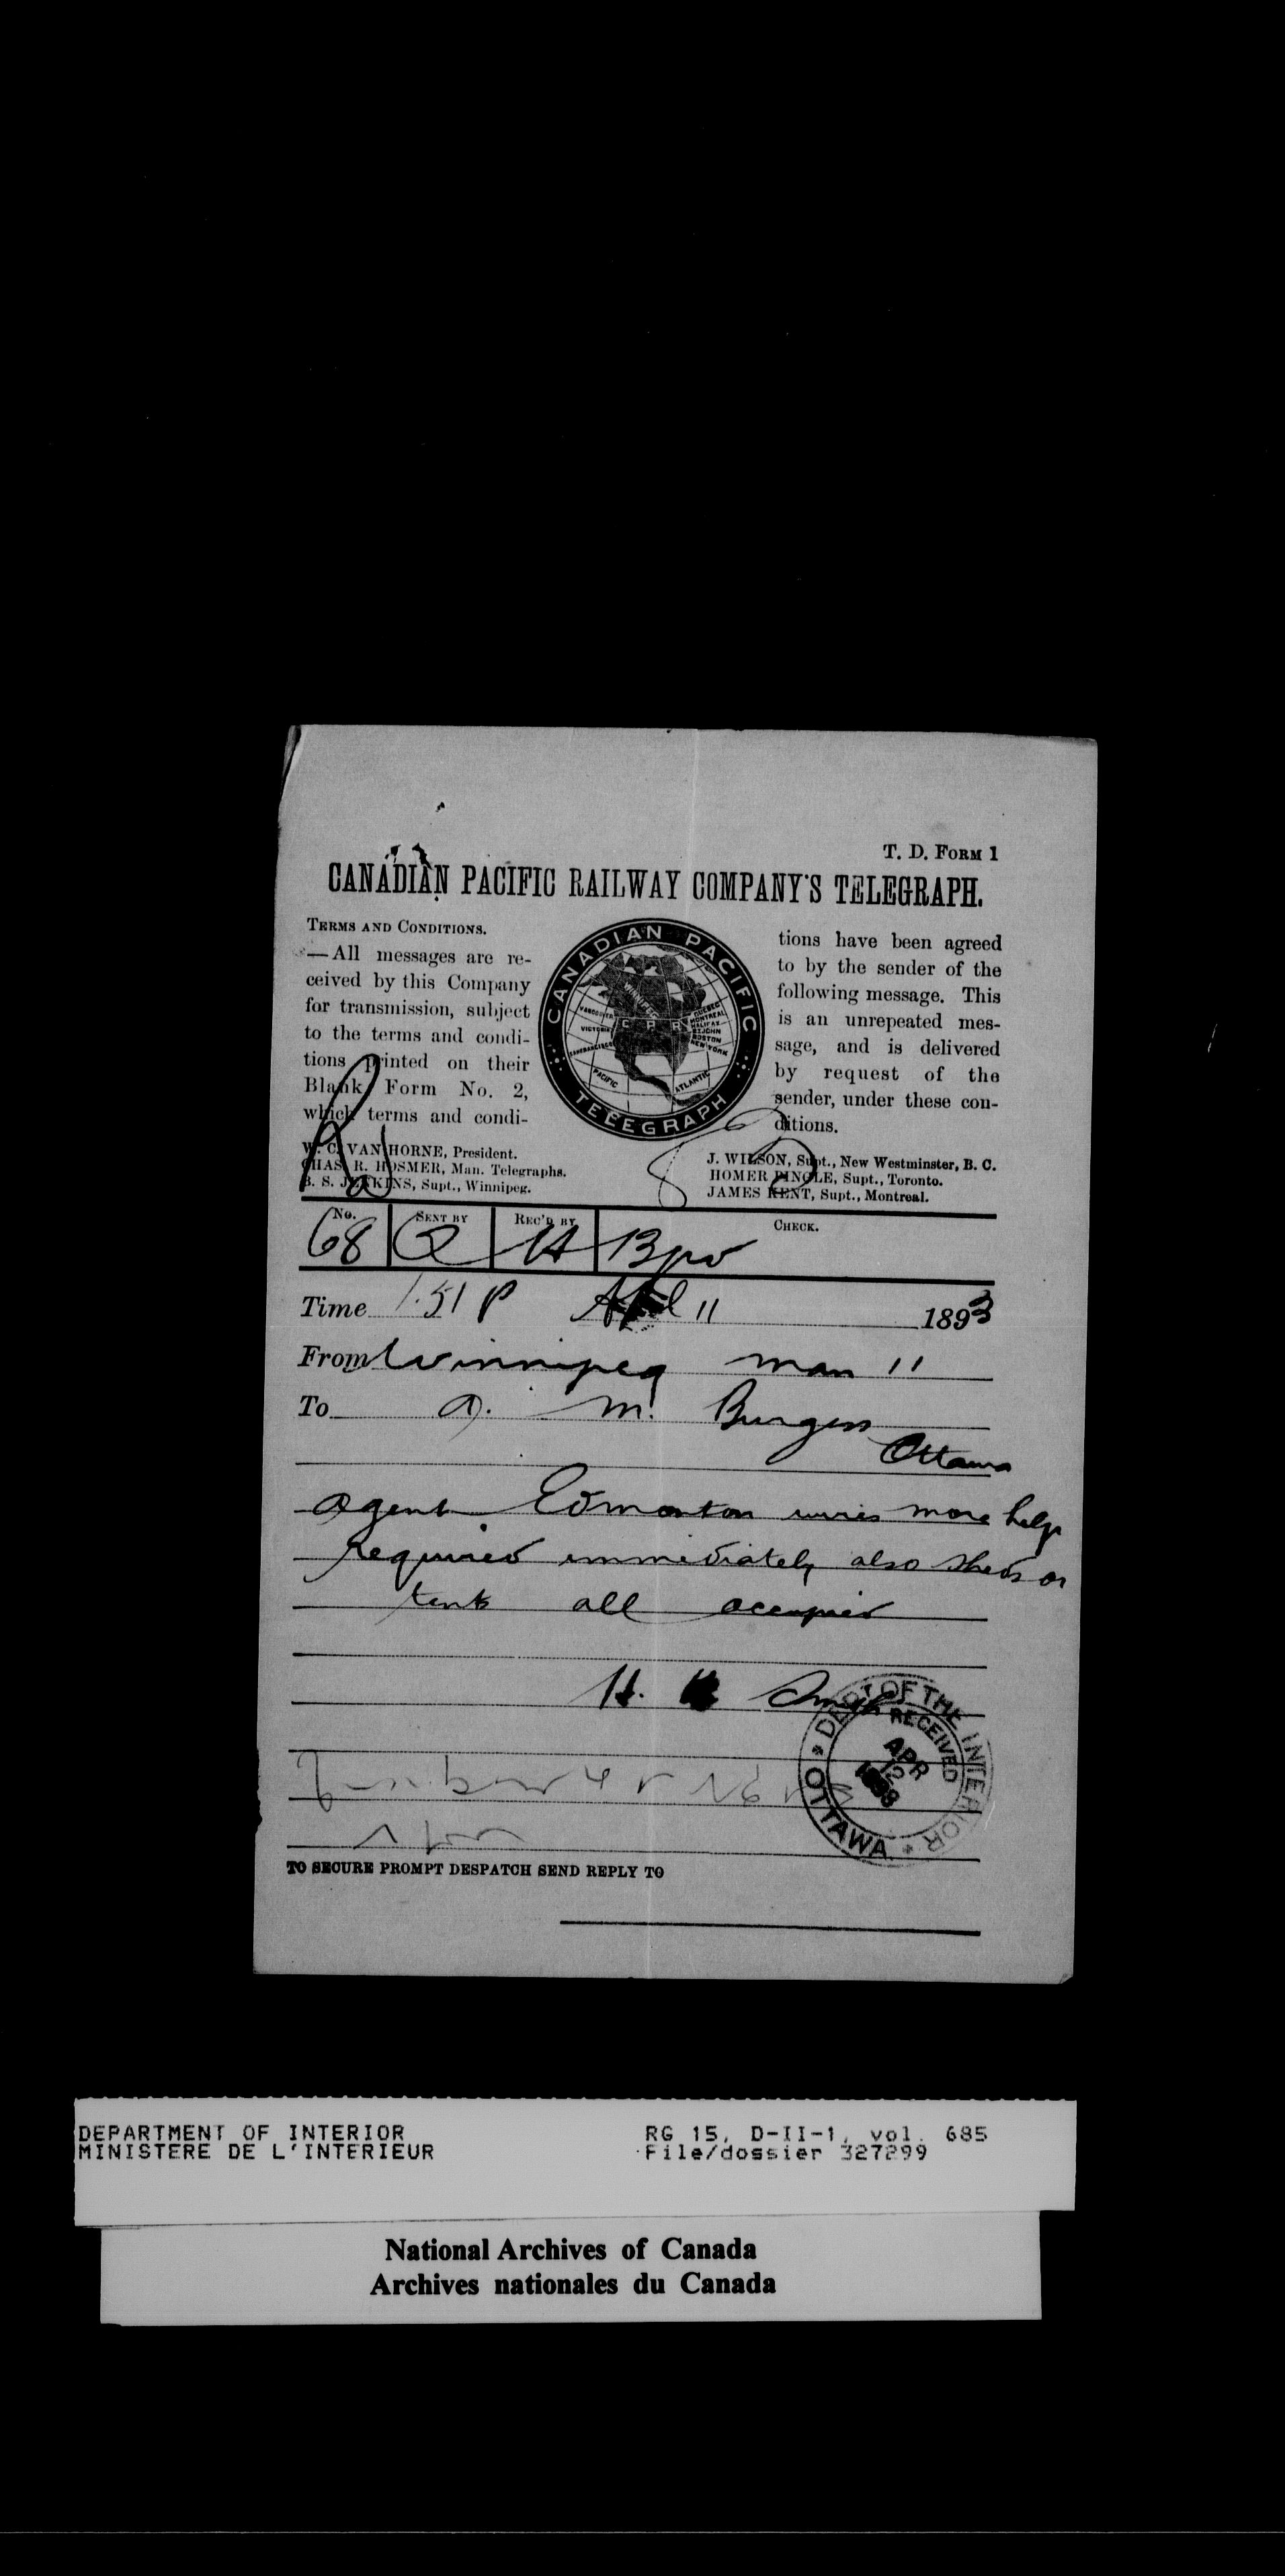 T. D. FORM 1
CANADIAN PACIFIC RAILWAY COMPANY'S TELEGRAPH.
TERMS AND CONDITIONS.
—All messages are re-
ceived by this Company
for transmission, subject
to the terms and condi-
tions printed on their
Blank Form No. 2,
which terms and condi-
CANADIAN PACIFIC
TELEGRAPH
WINNIPEG
VANCOUVER
VICTORIA
SAN FRANCISCO
C P R
QUEBEC
MONTREAL
HALIFAX
ST JOHN
BOSTON
NEW YORK
PACIFIC
ATLANTIC
tions have been agreed
to by the sender of the
following message. This
is an unrepeated mes-
sage, and is delivered
by request of the
sender, under these con-
ditions.
W. C. VAN HORNE, President.
CHAS. R. HOSMER, Man. Telegraphs.
B. S. JENKINS, Supt., Winnipeg.
J. WILSON, Supt., New Westminster, B. C.
HOMER PINGLE, Supt., Toronto.
JAMES KENT, Supt., Montreal.
No. SENT BY REC'D BY CHECK.
68
Time 1.51 P April 11 1893
From Winnipeg Man 11
To A. M. Burgess
Ottawa
Agent Edmonton wires more help
required immediately also sheds or
tents all occupied
H. Smith
DEPT OF THE INTERIOR
RECEIVED
APR
12
OTTAWA
TO SECURE PROMPT DESPATCH SEND REPLY TO
DEPARTMENT OF INTERIOR
MINISTERE DE L'INTERIEUR
RG 15, D-II-1, vol. 685
File/dossier 327299
National Archives of Canada
Archives nationales du Canada